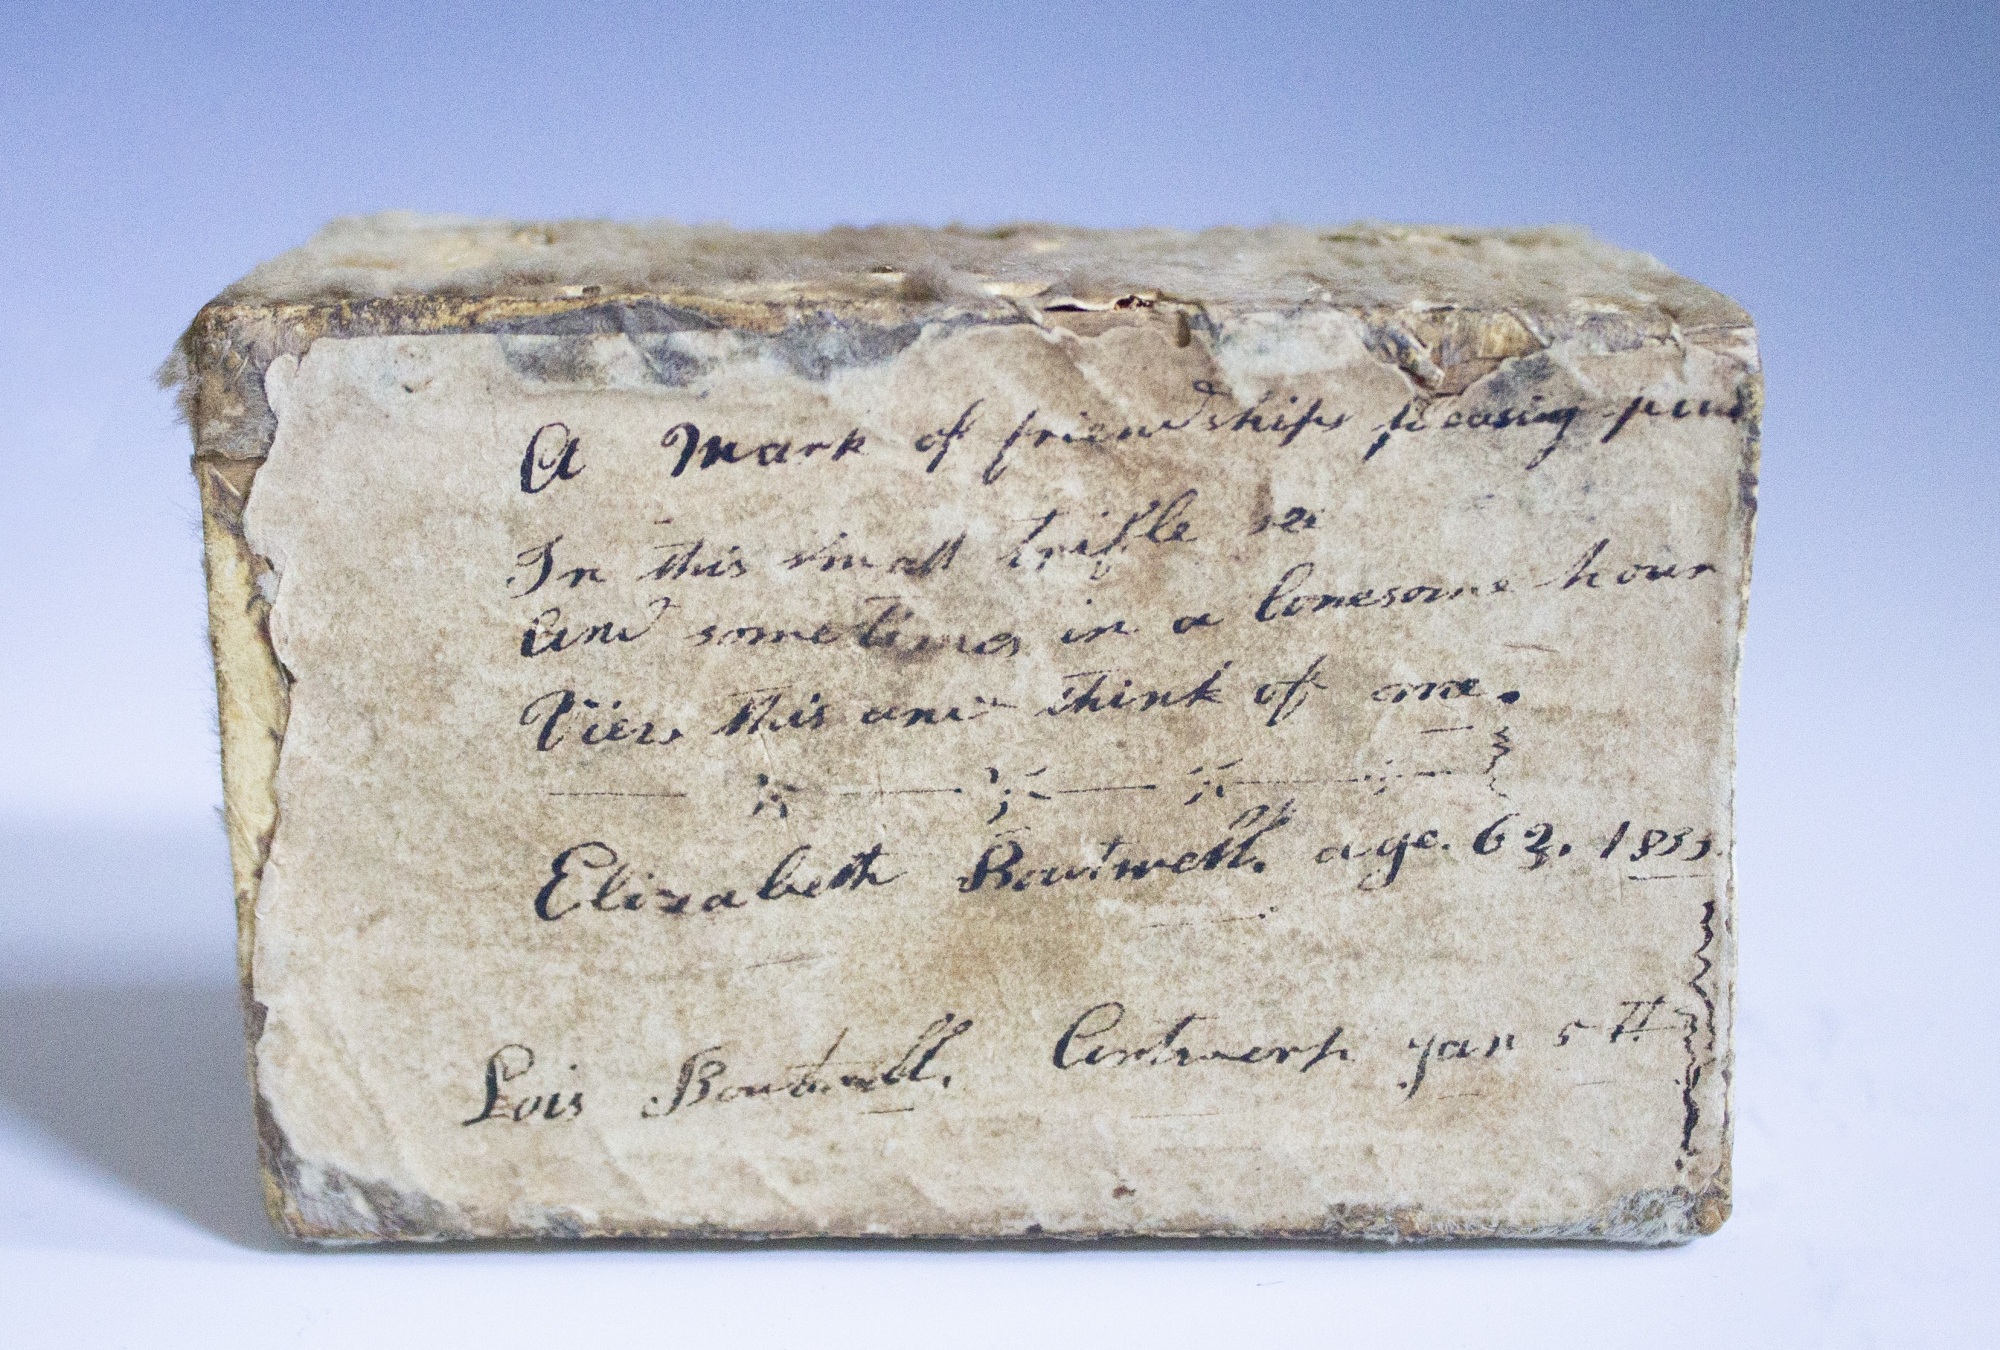 A Mark of friendships pleasing
In this small trifle see
And sometimes in a lonesome hour
View this and think of me.
Elizabeth Boutwell. age. 63. 1855.
Lois Boutwell. Antwerp Jan 5th